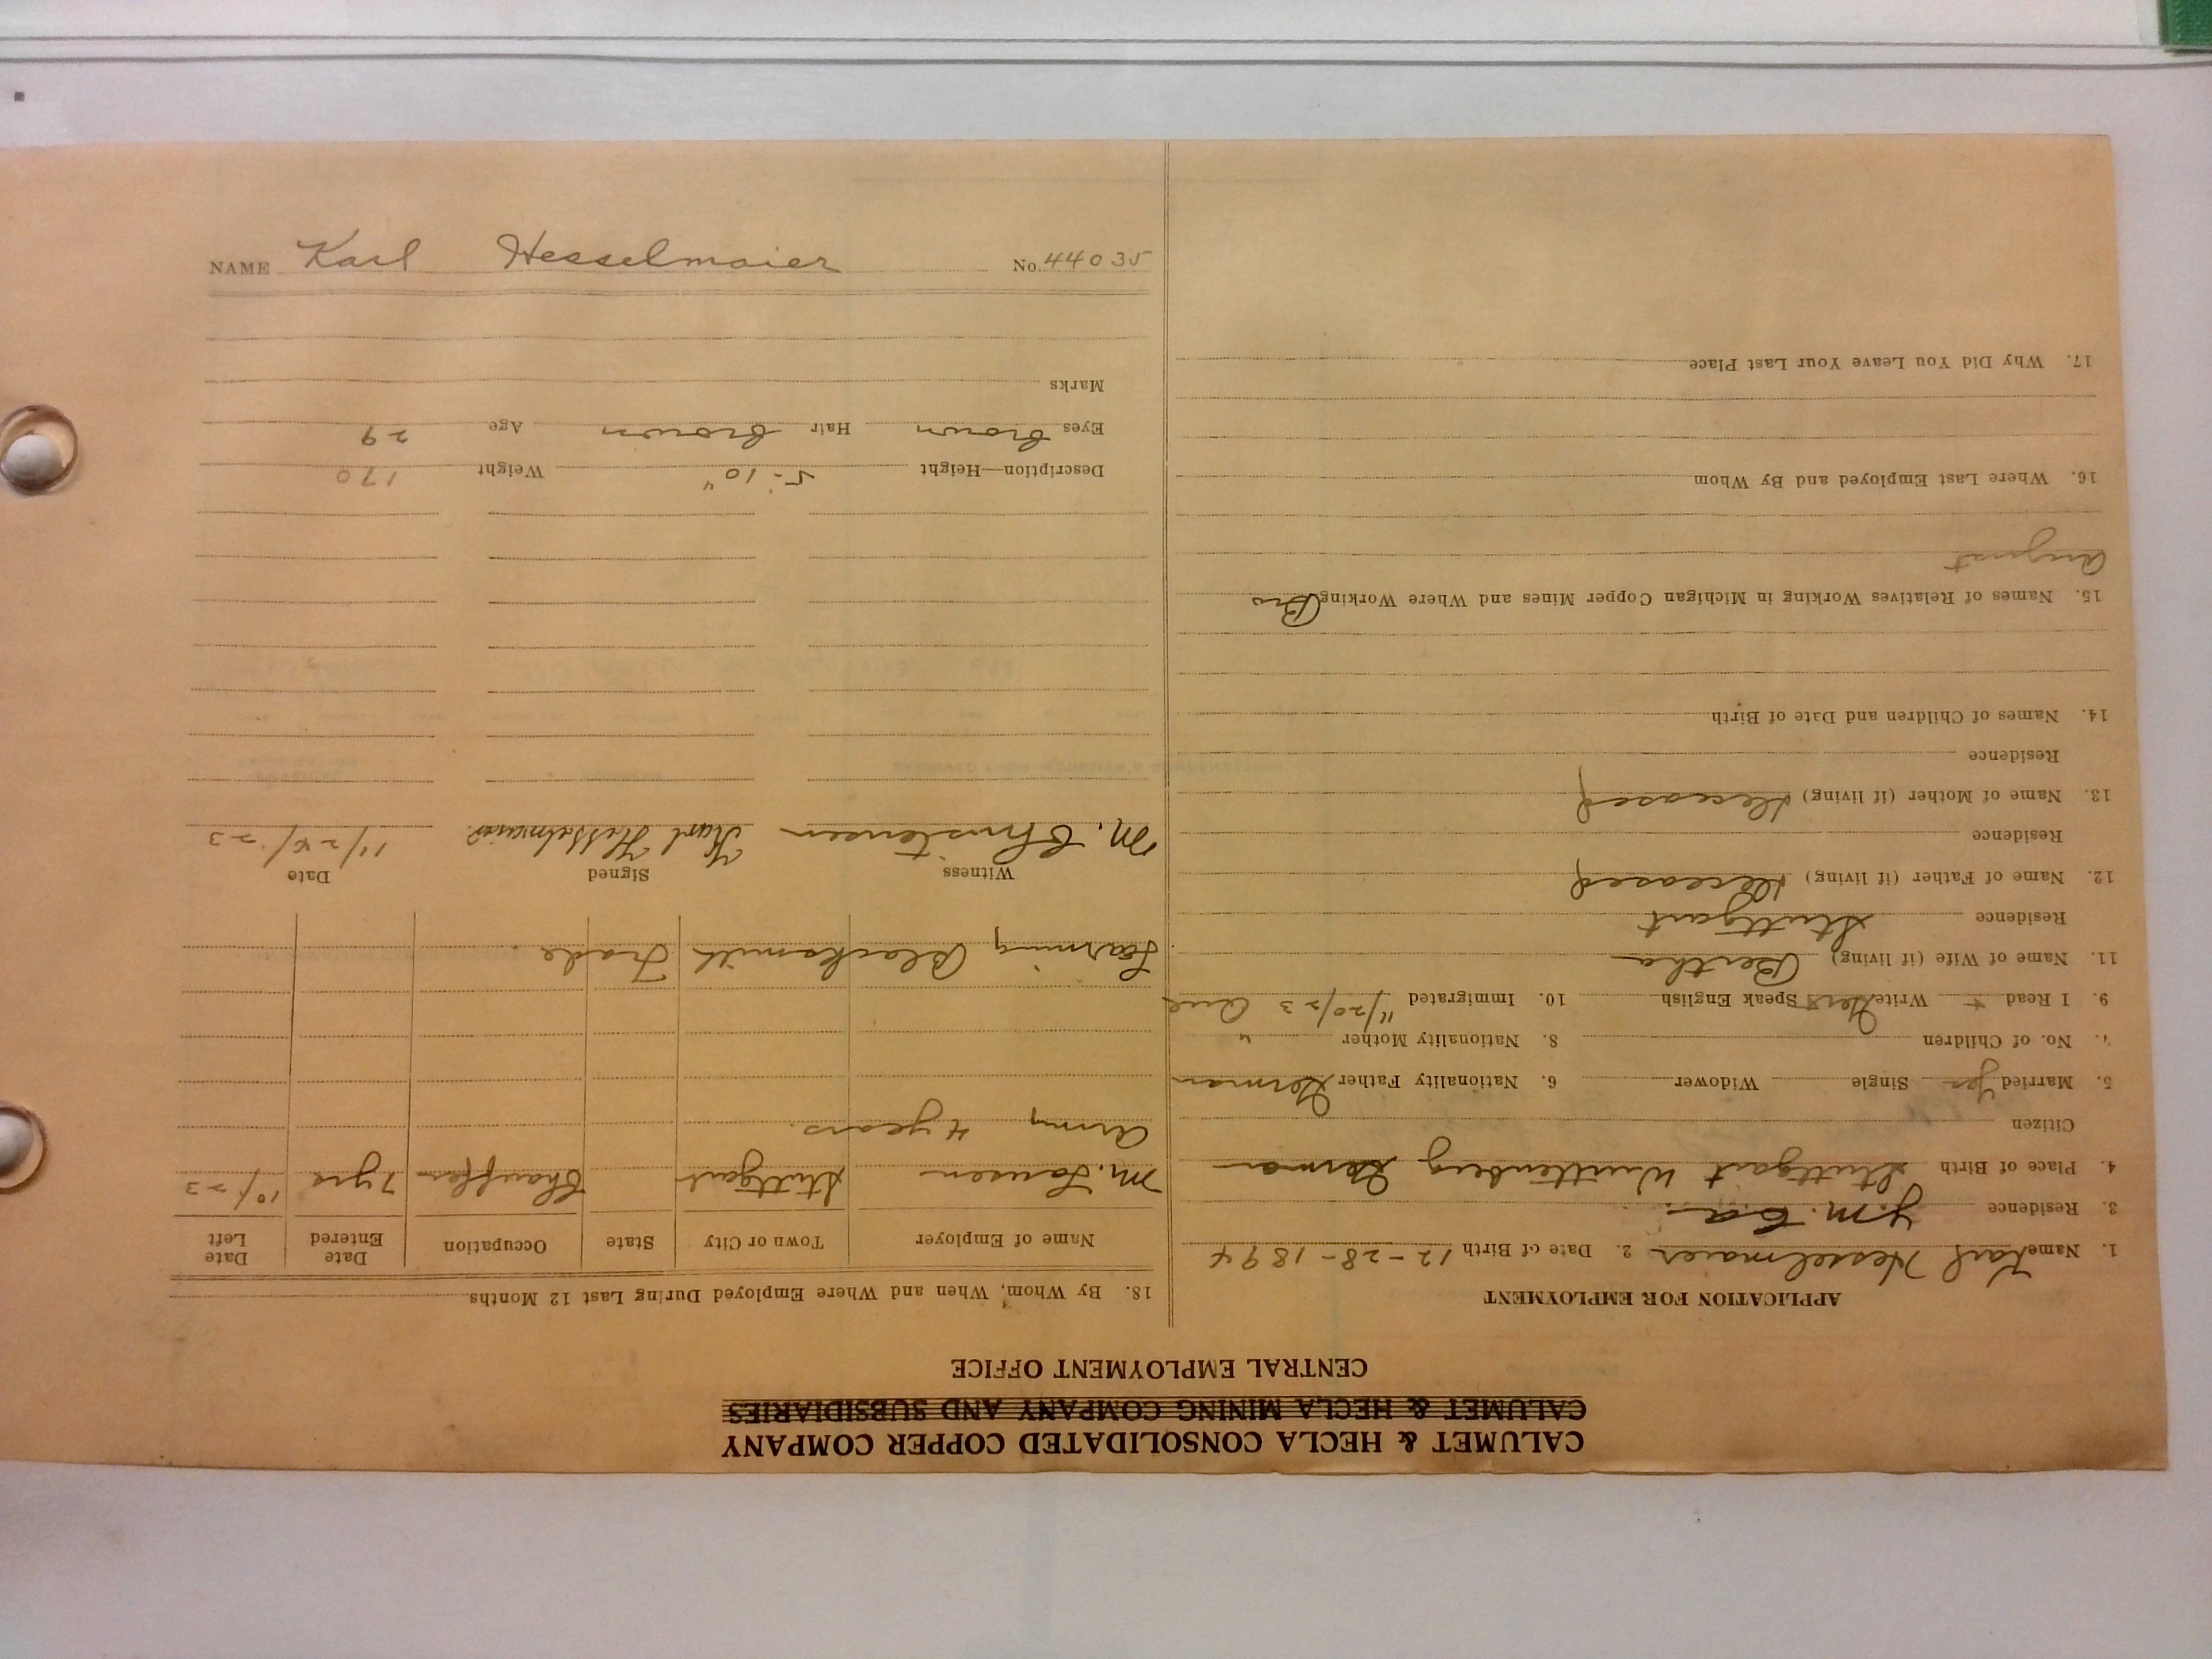 CALUMET & HECLA CONSOLIDATED COPPER COMPANY
CALUMET & HECLA MINING COMPANY AND SUBSIDIARIES
CENTRAL EMPLOYMENT OFFICE
APPLICATION FOR EMPLOYMENT
1. Name Karl Hesselmaier 2. Date of Birth 12-28-1894
3. Residence Y.M.C.A.
4. Place of Birth Stuttgart Wurttenberg German
Citizen
5. Married Yes Single Widower 6. Nationality Father German
7. No. of Children 8. Nationality Mother "
9. I Read + Write Speak English 10. Immigrated 11/20/23
11. Name of Wife (if living) Bertha
Residence Stuttgart
12. Name of Father (if living) Deceased
Residence
13. Name of Mother (if living) Deceased
Residence
14. Names of Children and Date of Birth
15. Names of Relatives Working in Michigan Copper Mines and Where Working Bro
August
16. Where Last Employed and By Whom
17. Why Did You Leave Your Last Place
18. By Whom, When and Where Employed During Last 12 Months
Name of Employer Town or City State Occupation Date Entered Date Left
M. Stuttgart Chauffer 7 yrs 10/23
Army 4 years.
Learning Blacksmith Trade.
Witness Signed Date
M. Christensen Karl Hesselmaier 11/24/23
Description—Height 5-10" Weight 170
Eyes brown Hair brown Age 29
Marks
NAME Karl Hesselmaier No. 44035